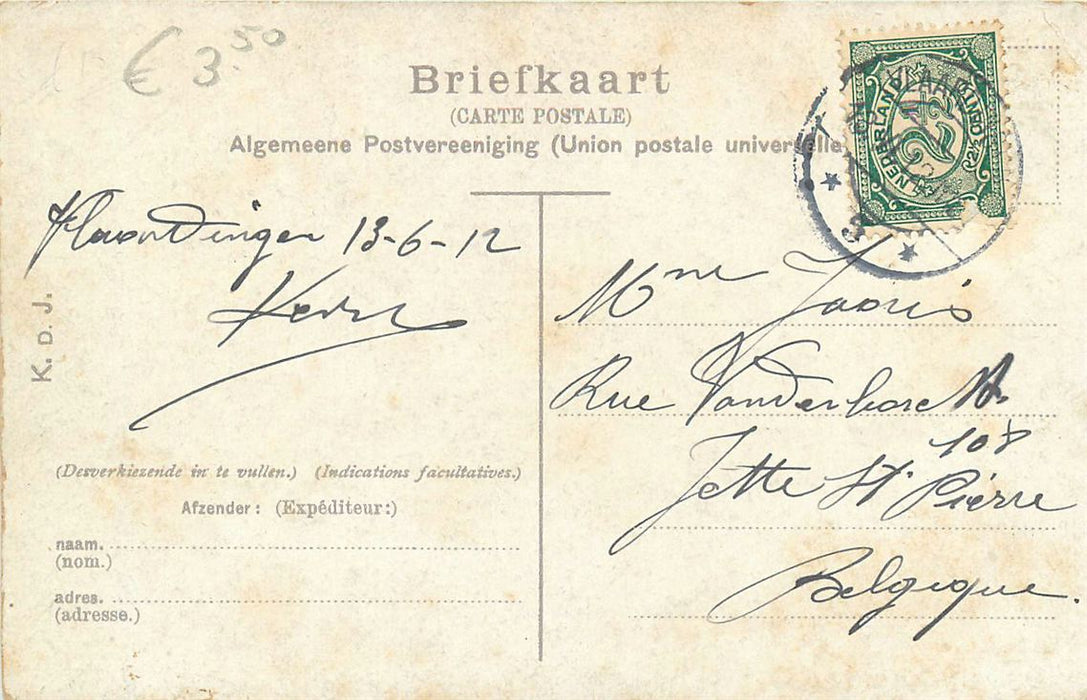 € 3.50
Briefkaart
(CARTE POSTALE)
Algemeene Postvereeniging (Union postale universelle
NEDERLAND
2½
VLAAR
3
Vlaardingen 13-6-12
K. D. J.
Mme Jooris
Rue Vanderborcht
108
Jette St Pierre
Belgique.
(Desverkiezende in te vullen.) (Indications facultatives.)
Afzender: (Expéditeur:)
naam.
(nom.)
adres.
(adresse.)